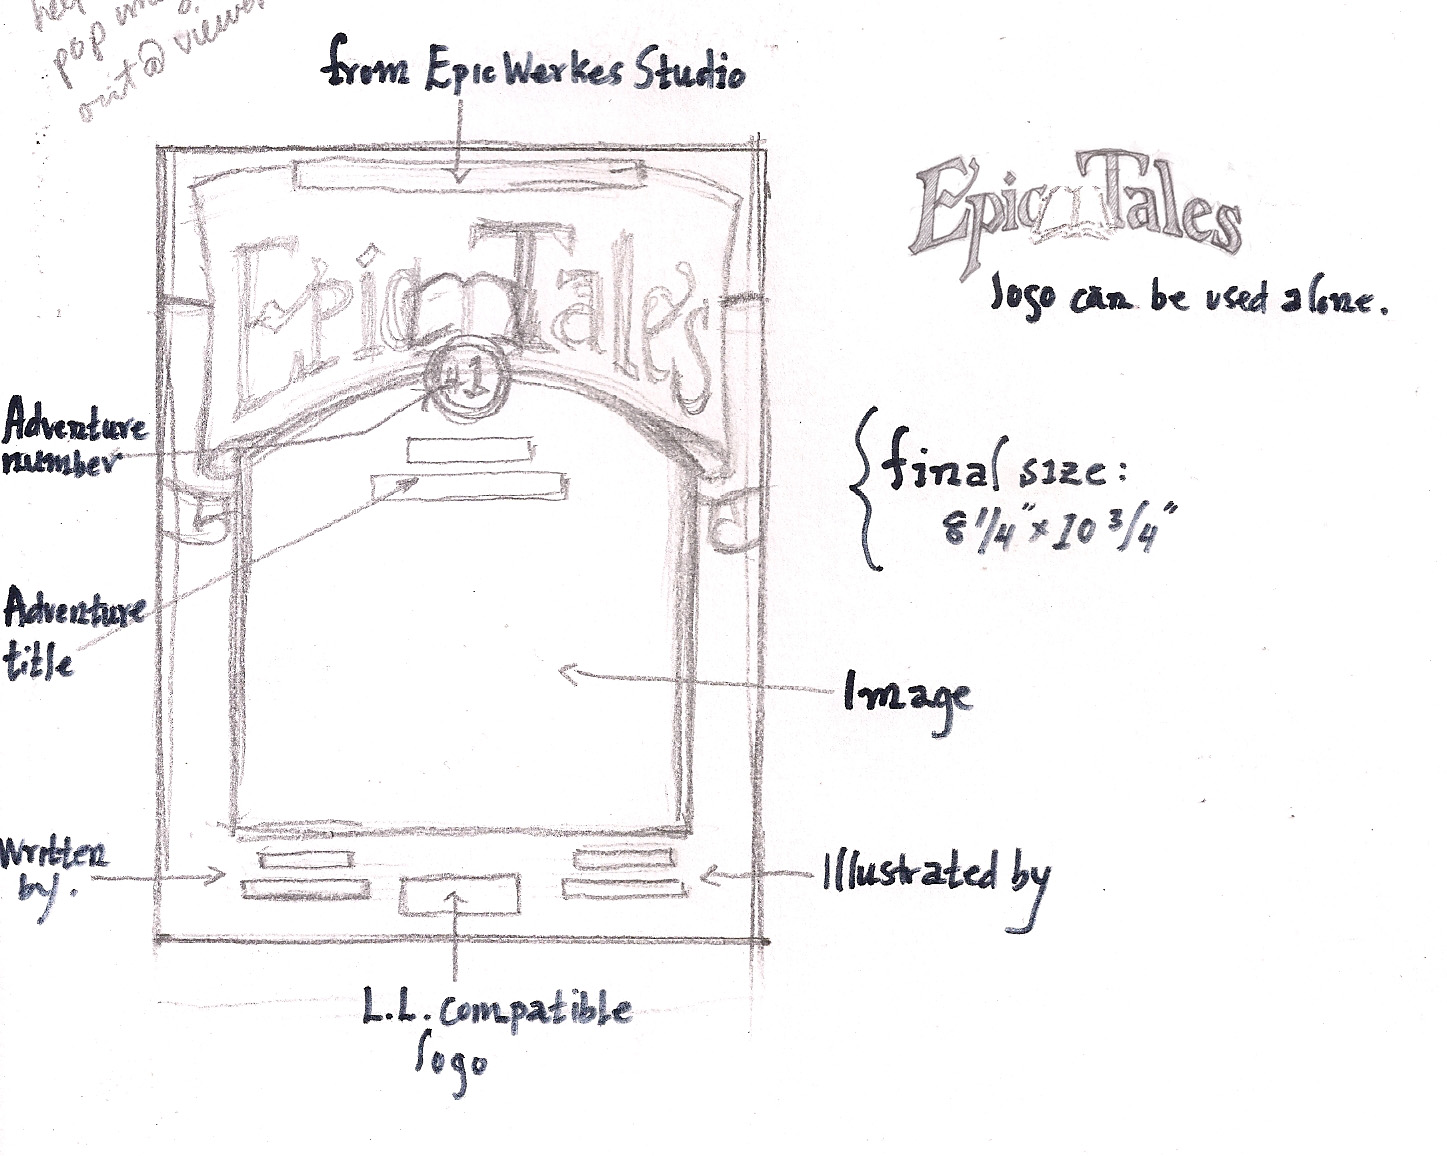 pop
out @ viewer
from Epic Werkes Studio
Epic Tales
#1
Epic Tales
logo can be used alone.
Adventure
number
final size:
8 1/4" x 10 3/4"
Adventure
title
Image
Written
by.
Illustrated by
L.L. compatible
logo